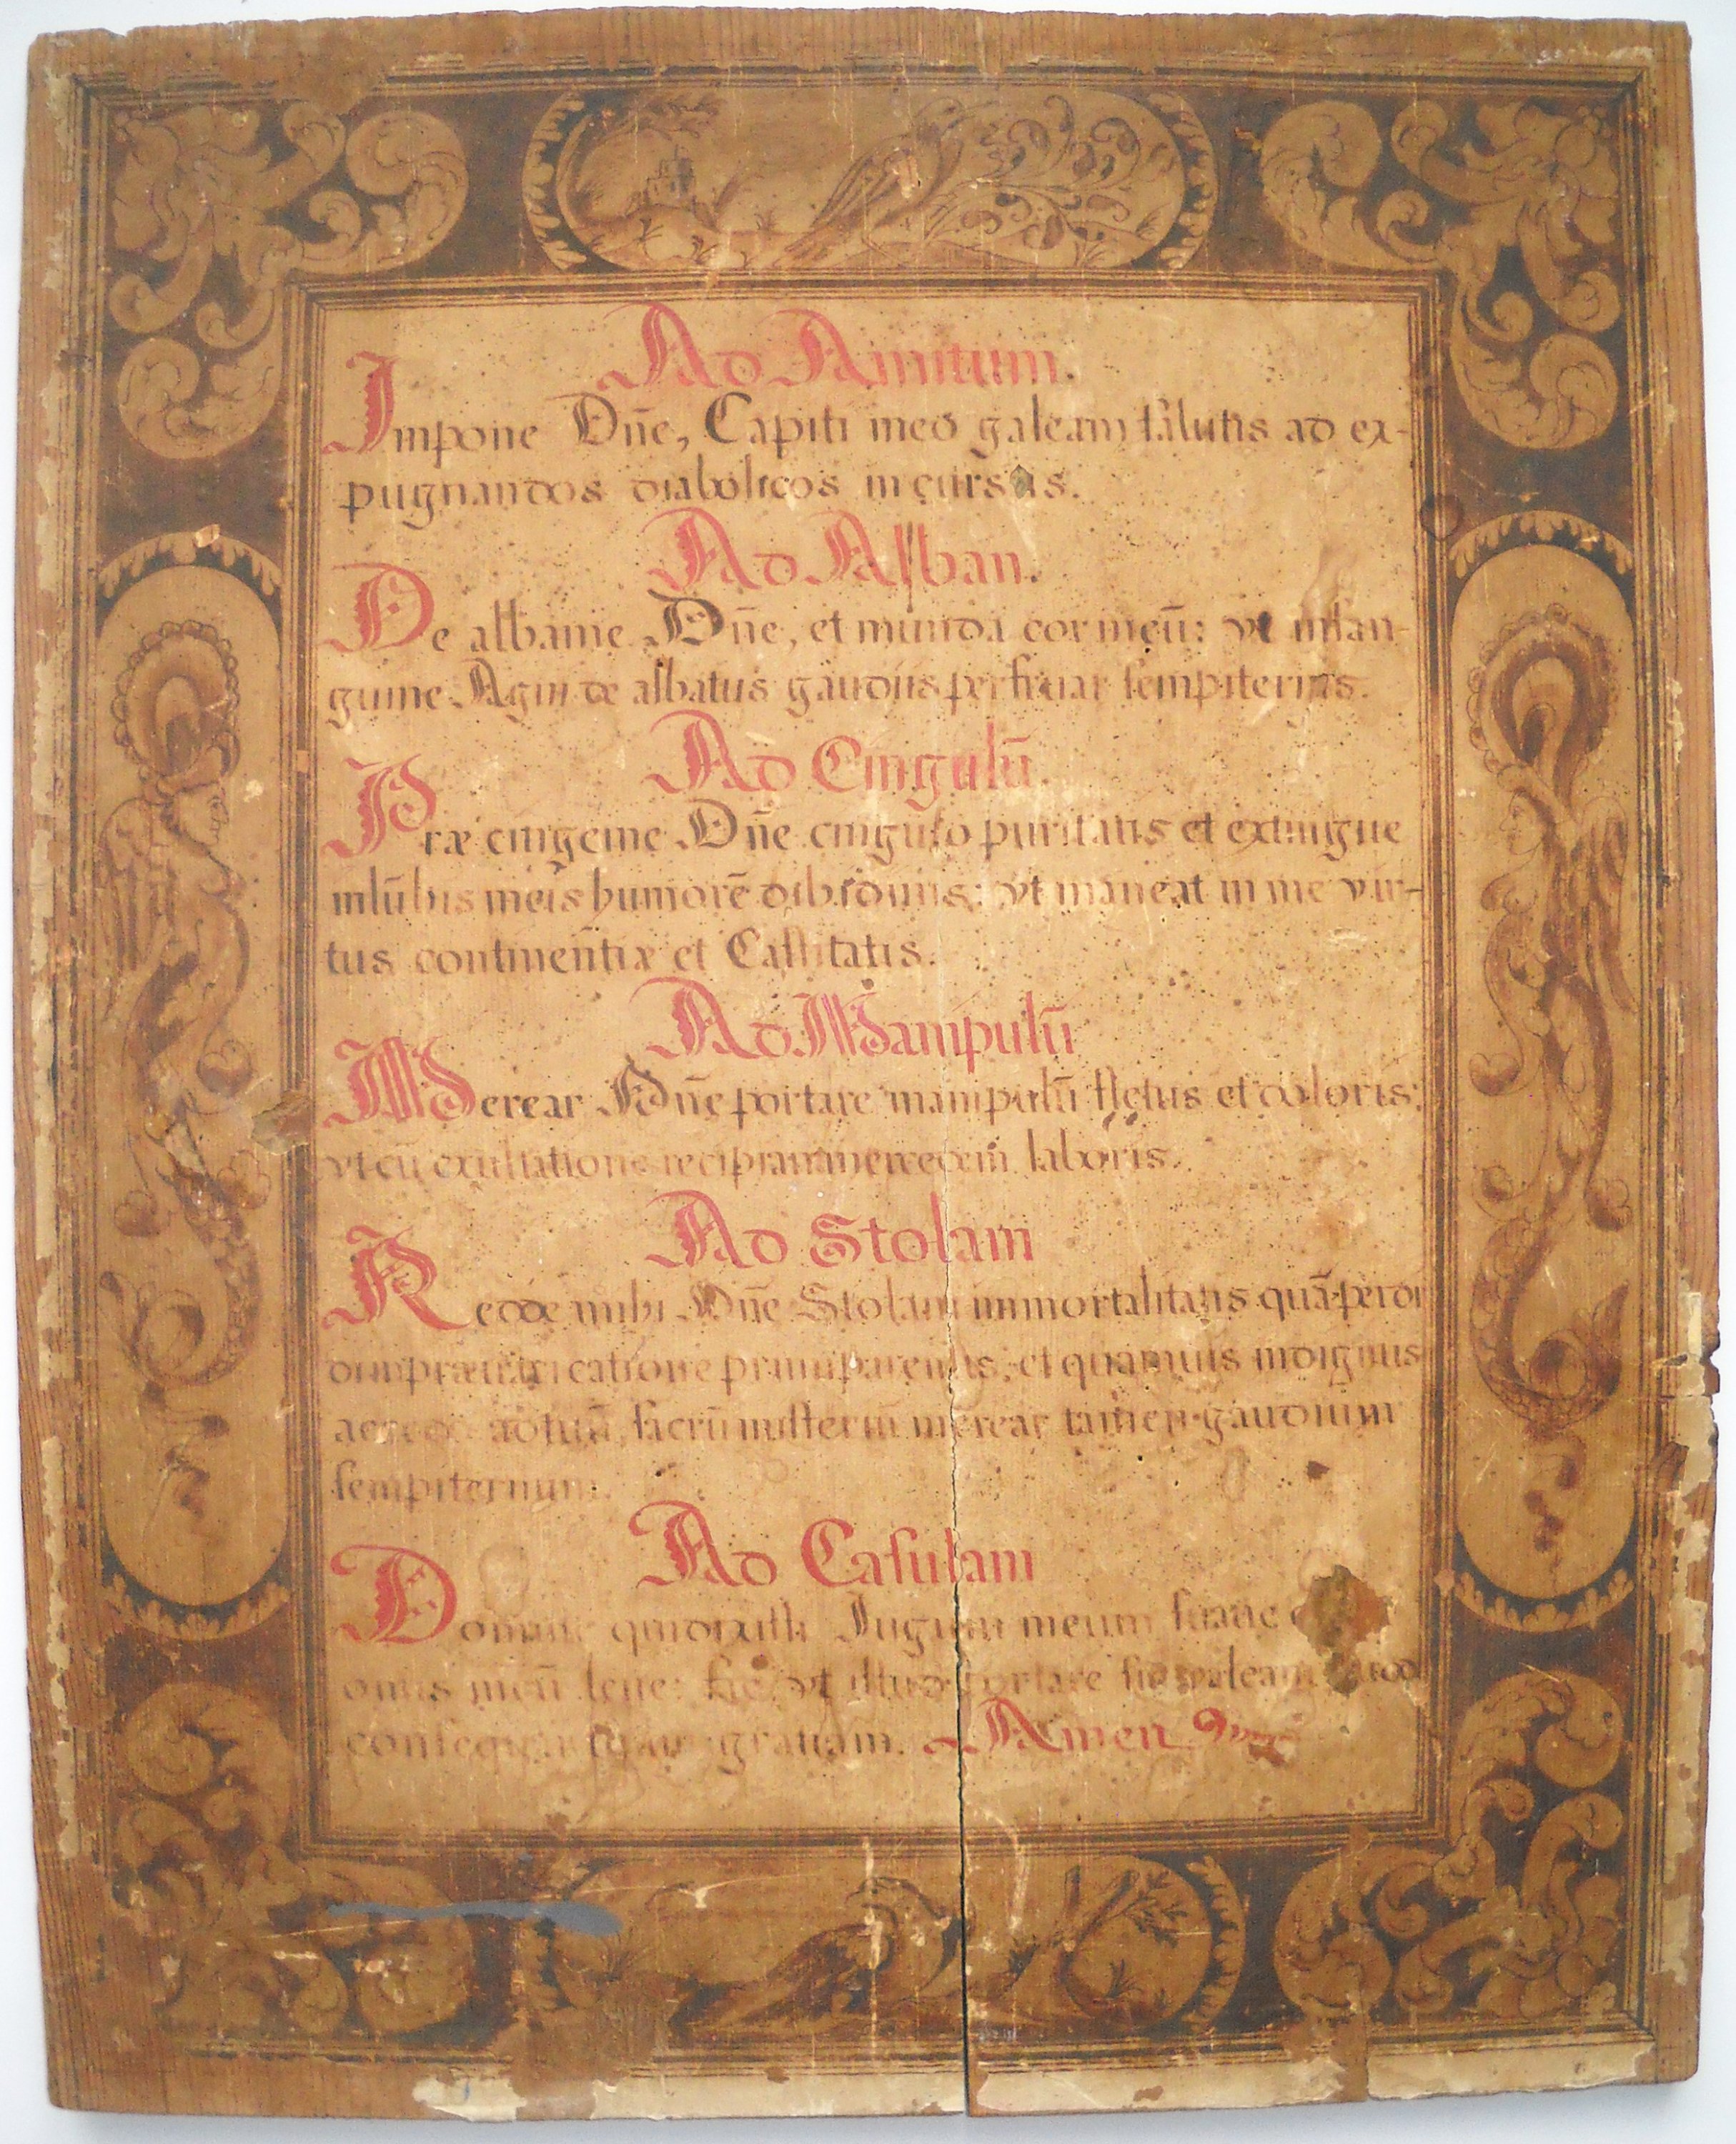 Ad Amitum.
Impone Dñe, Capiti meo galeam salutis ad ex-
pugnandos diabolicos incursus.
Ad Alban.
De albame Dñe, et munda cor meũ: vt insan-
guine Agni de albatus gaudiis perfruar sempiternis.
Ad Cingulũ.
Præ cingeme Dñe cingulo puritatis et extingue
inlũbis meis humorẽ libidinis: vt maneat in me vir-
tus continentiæ et Castitatis.
Ad Manipulũ
Merear Dñe portare manipulũ fletus et doloris:
vt cũ exultatione recipiam mercedem laboris.
Ad Stolam
Redde mihi Dñe Stolam immortalitatis quã perdi
di in præuaricatione primi parentis; et quamuis indignus
accedo ad tuũ sacrũ misteriũ merear tamen gaudium
sempiternum.
Ad Casulam
Domine qui dixisti Iugum meum suaue
onus meũ leue: fac vt illud portare sic valeam quod
consequar tuam gratiam. Amen